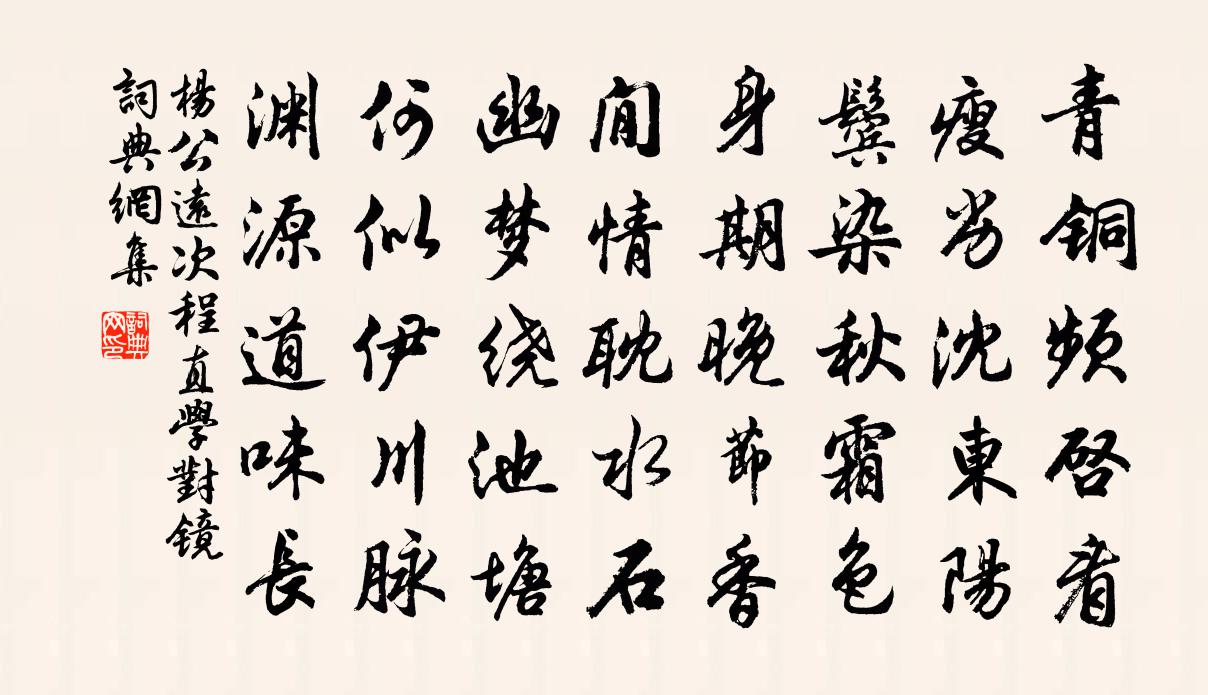 青铜频啓看
瘦劣沈東陽
鬓染秋霜色
身期晚節香
閒情耽水石
幽梦绕池塘
何似伊川脉
渊源道味長
楊公遠次程直學對镜
詞典網集
詞典网印